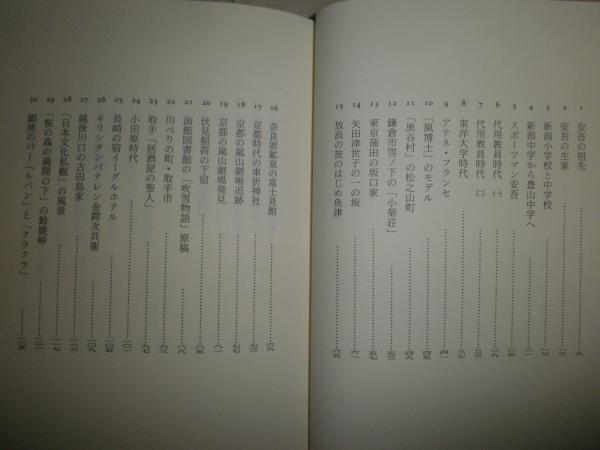 1 安吾の祖先 ……… 九
2 安吾の生家
3 新潟小学校と中学校
4 新潟中学から豊山中学へ
5 スポーツマン安吾
6 代用教員時代(一)
7 代用教員時代(二) ……… 三三
8 東洋大学時代 ……… 三七
9 アテネ・フランセ ……… 四一
10 「風博士」のモデル ……… 四五
11 「黒谷村」の松之山町 ……… 四九
12 鎌倉市雪ノ下の「小菊荘」 ……… 五三
13 東京蒲田の坂口家 ……… 五七
14 矢田津世子の一の坂 ……… 六一
15 放浪の旅のはじめ魚津 ……… 六五
16 奈良原鉱泉の富士見館 ……… 六九
17 京都時代の車折神社 ……… 七三
18 京都の嵐山劇場追跡 ……… 七七
19 京都の嵐山劇場発見 ……… 八一
20 伏見稲荷の下宿 ……… 八五
21 函館図書館の「吹雪物語」原稿 ……… 八九
22 川べりの町・取手市
23 取手「居酒屋の聖人」 ……… 九七
24 小田原時代 ……… 一〇一
25 長崎の宿イーグルホテル
26 キリシタンバテレン金鍔次兵衛 ……… 一〇九
27 越後川口の古田島家 ……… 一一三
28 「日本文化私観」の風景 ……… 一一七
29 「桜の森の満開の下」の鈴鹿峠 ……… 一二一
30 銀座のバー「ルパン」と「クラクラ」 ……… 一二五